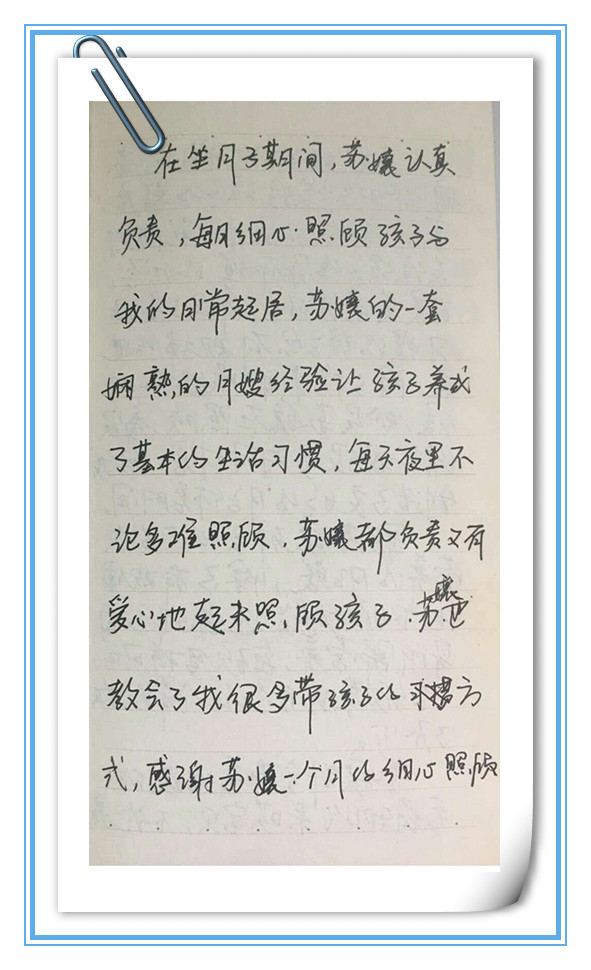 在坐月子期间，苏嬢认真
负责，每日细心照顾孩子与
我的日常起居，苏嬢的一套
娴熟的月嫂经验让孩子养成
了基本的生活习惯，每天夜里不
论多难照顾，苏嬢都负责又有
爱心地起来照顾孩子.苏嬢也
教会了我很多带孩子的 方
式，感谢苏嬢一个月的细心照顾